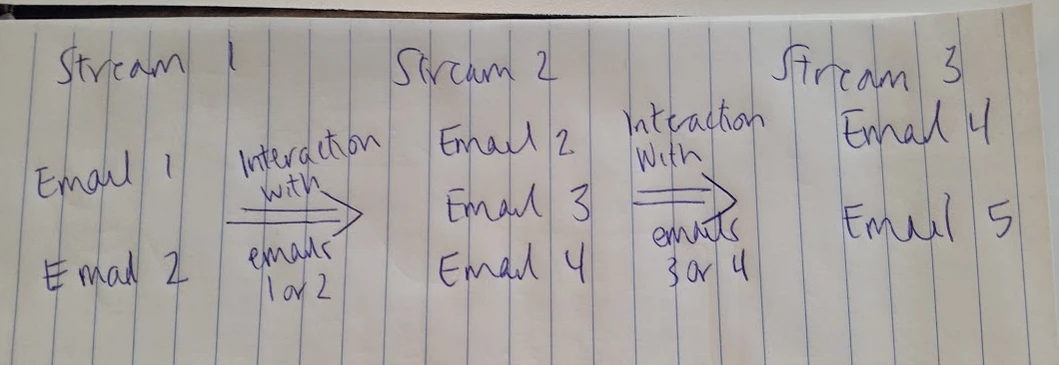 Stream 1
Email 1
Email 2
Interaction
with
emails
1 or 2
Stream 2
Email 2
Email 3
Email 4
Interaction
with
emails
3 or 4
Stream 3
Email 4
Email 5